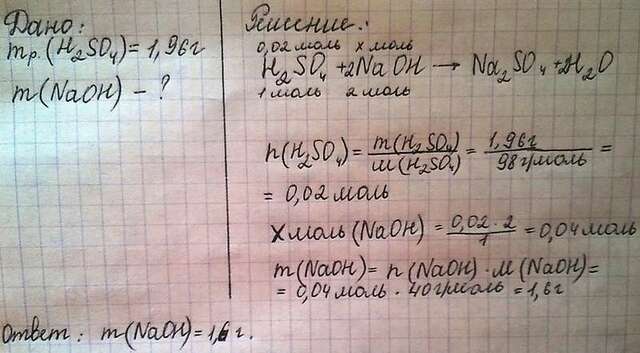 Дано:
mр.(H₂SO₄)=1,96г
m(NaOH) - ?
Решение:
0,02моль x моль
H₂SO₄ +2NaOH → Na₂SO₄+2H₂O
1 моль 2 моль
n(H₂SO₄)= m(H₂SO₄)/M(H₂SO₄) = 1,96г/98г/моль =
= 0,02 моль
X моль (NaOH) = 0,02·2/1 = 0,04моль
m(NaOH)= n (NaOH)·M(NaOH)=
= 0,04моль · 40г/моль = 1,6г
Ответ: m(NaOH)=1,6г.